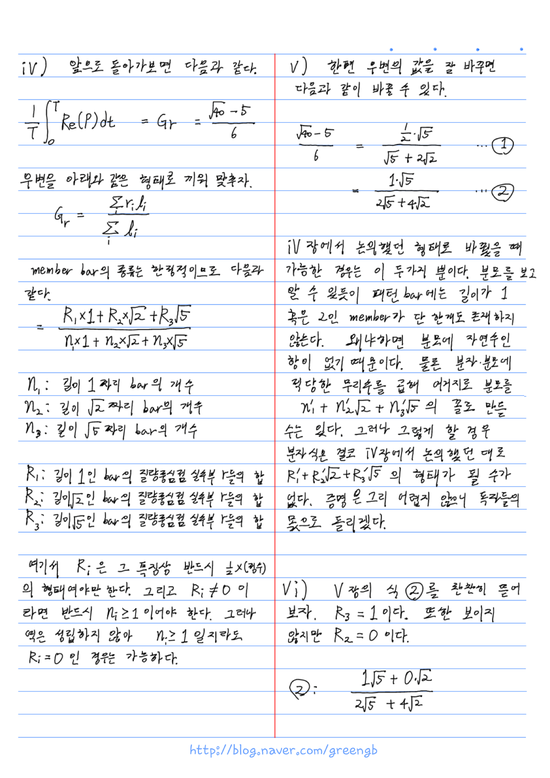 iv) 앞으로 돌아가보면 다음과 같다.
1/T ∫₀ᵀ Re(P)dt = Gr = (√40 - 5)/6
우변을 아래와 같은 형태로 끼워 맞추자.
Gr = Σrᵢlᵢ / Σlᵢ
member bar의 종류는 한정적이므로 다음과
같다.
= (R₁×1 + R₂×√2 + R₃√5) / (n₁×1 + n₂×√2 + n₃×√5)
n₁: 길이 1짜리 bar의 개수
n₂: 길이 √2 짜리 bar의 개수
n₃: 길이 √5 짜리 bar의 개수
R₁: 길이 1인 bar의 질량중심점 실수부 r들의 합
R₂: 길이 √2인 bar의 질량중심점 실수부 r들의 합
R₃: 길이 √5인 bar의 질량중심점 실수부 r들의 합
여기서 Rᵢ은 그 특징상 반드시 ½×(정수)
의 형태여야만 한다. 그리고 Rᵢ≠0 이
라면 반드시 nᵢ≥1 이어야 한다. 그러나
역은 성립하지 않아 nᵢ≥1 일지라도
Rᵢ=0 인 경우는 가능하다.
v) 한편 우변의 값을 잘 바꾸면
다음과 같이 바꿀 수 있다.
(√40 - 5)/6 = (½·√5)/(√5 + 2√2) ··· ①
= (1·√5)/(2√5 + 4√2) ··· ②
iv 장에서 논의했던 형태로 바꿨을 때
가능한 경우는 이 두가지 뿐이다. 분모를 보고
알 수 있듯이 패턴 bar에는 길이가 1
혹은 2인 member가 단 한개도 존재하지
않는다. 왜냐하면 분모에 자연수인
항이 없기 때문이다. 물론 분자·분모에
적당한 무리수를 곱해 억지로 분모를
n₁' + n₂'√2 + n₃'√5 의 꼴로 만들
수는 있다. 그러나 그렇게 할 경우
분자식은 결코 iv장에서 논의했던 대로
R₁' + R₂'√2 + R₃'√5 의 형태가 될 수가
없다. 증명은 그리 어렵지 않으니 독자들의
몫으로 돌리겠다.
vi) v 장의 식 ②를 찬찬히 뜯어
보자. R₃ = 1 이다. 또한 보이지
않지만 R₂ = 0 이다.
②: (1√5 + 0·√2) / (2√5 + 4√2)
http://blog.naver.com/greengb